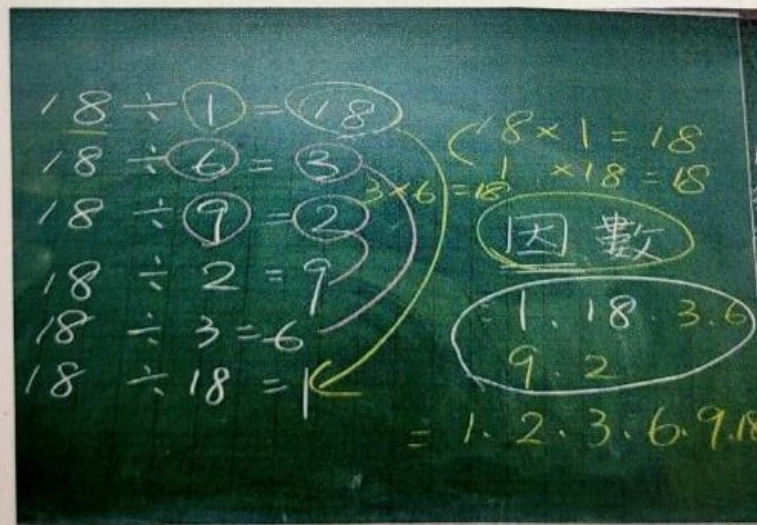 18 ÷ 1 = 18
18 ÷ 6 = 3
18 ÷ 9 = 2
18 ÷ 2 = 9
18 ÷ 3 = 6
18 ÷ 18 = 1
18 × 1 = 18
1 × 18 = 18
3 × 6 = 18
因數
1、18、3、6
9、2
= 1、2、3、6、9、18